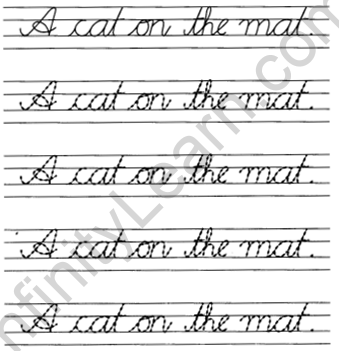 A cat on the mat.
A cat on the mat.
A cat on the mat.
A cat on the mat.
A cat on the mat.
InfinityLearn.com